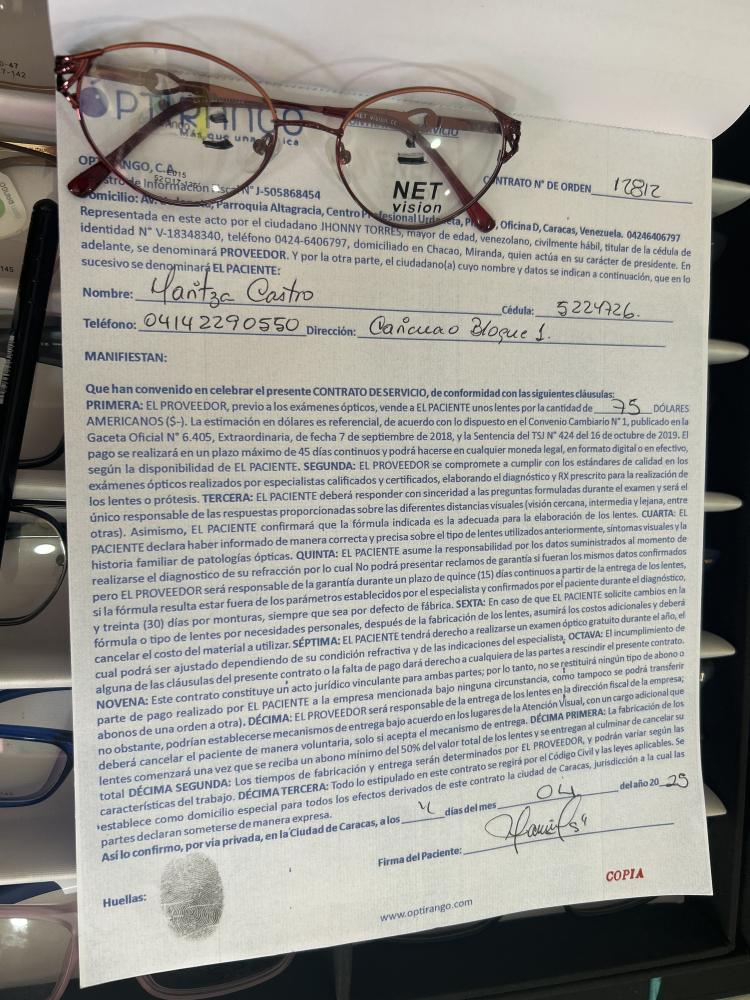 OPTIRANGO
Más que una óptica
NET VISION
NET
vision
CONTRATO N° DE ORDEN 12812
N° J-505868454
Parroquia Altagracia, Centro Profesional Oficina D, Caracas, Venezuela. 04246406797
Representada en este acto por el ciudadano JHONNY TORRES, mayor de edad, venezolano, civilmente hábil, titular de la cédula de
identidad N° V-18348340, teléfono 0424-6406797, domiciliado en Chacao, Miranda, quien actúa en su carácter de presidente. En
adelante, se denominará PROVEEDOR. Y por la otra parte, el ciudadano(a) cuyo nombre y datos se indican a continuación, que en lo
sucesivo se denominará EL PACIENTE:
Nombre: Maritza Castro Cédula: 5224726.
Teléfono: 04142290550 Dirección: Caricuao Bloque 1.
MANIFIESTAN:
Que han convenido en celebrar el presente CONTRATO DE SERVICIO, de conformidad con las siguientes cláusulas:
PRIMERA: EL PROVEEDOR, previo a los exámenes ópticos, vende a EL PACIENTE unos lentes por la cantidad de 75 DÓLARES
AMERICANOS ($-). La estimación en dólares es referencial, de acuerdo con lo dispuesto en el Convenio Cambiario N° 1, publicado en la
Gaceta Oficial N° 6.405, Extraordinaria, de fecha 7 de septiembre de 2018, y la Sentencia del TSJ N° 424 del 16 de octubre de 2019. El
pago se realizará en un plazo máximo de 45 días continuos y podrá hacerse en cualquier moneda legal, en formato digital o en efectivo,
según la disponibilidad de EL PACIENTE. SEGUNDA: EL PROVEEDOR se compromete a cumplir con los estándares de calidad en los
exámenes ópticos realizados por especialistas calificados y certificados, elaborando el diagnóstico y RX prescrito para la realización de
los lentes o prótesis. TERCERA: EL PACIENTE deberá responder con sinceridad a las preguntas formuladas durante el examen y será el
único responsable de las respuestas proporcionadas sobre las diferentes distancias visuales (visión cercana, intermedia y lejana, entre
otras). Asimismo, EL PACIENTE confirmará que la fórmula indicada es la adecuada para la elaboración de los lentes. CUARTA: EL
PACIENTE declara haber informado de manera correcta y precisa sobre el tipo de lentes utilizados anteriormente, síntomas visuales y la
historia familiar de patologías ópticas. QUINTA: EL PACIENTE asume la responsabilidad por los datos suministrados al momento de
realizarse el diagnostico de su refracción por lo cual No podrá presentar reclamos de garantía si fueran los mismos datos confirmados
pero EL PROVEEDOR será responsable de la garantía durante un plazo de quince (15) días continuos a partir de la entrega de los lentes,
si la fórmula resulta estar fuera de los parámetros establecidos por el especialista y confirmados por el paciente durante el diagnóstico,
y treinta (30) días por monturas, siempre que sea por defecto de fábrica. SEXTA: En caso de que EL PACIENTE solicite cambios en la
fórmula o tipo de lentes por necesidades personales, después de la fabricación de los lentes, asumirá los costos adicionales y deberá
cancelar el costo del material a utilizar. SÉPTIMA: EL PACIENTE tendrá derecho a realizarse un examen óptico gratuito durante el año, el
cual podrá ser ajustado dependiendo de su condición refractiva y de las indicaciones del especialista. OCTAVA: El incumplimiento de
alguna de las cláusulas del presente contrato o la falta de pago dará derecho a cualquiera de las partes a rescindir el presente contrato.
NOVENA: Este contrato constituye un acto jurídico vinculante para ambas partes; por lo tanto, no se restituirá ningún tipo de abono o
parte de pago realizado por EL PACIENTE a la empresa mencionada bajo ninguna circunstancia, como tampoco se podrá transferir
abonos de una orden a otra). DÉCIMA: EL PROVEEDOR será responsable de la entrega de los lentes en la dirección fiscal de la empresa;
no obstante, podrían establecerse mecanismos de entrega bajo acuerdo en los lugares de la Atención Visual, con un cargo adicional que
deberá cancelar el paciente de manera voluntaria, solo si acepta el mecanismo de entrega. DÉCIMA PRIMERA: La fabricación de los
lentes comenzará una vez que se reciba un abono mínimo del 50% del valor total de los lentes y se entregan al culminar de cancelar su
total DÉCIMA SEGUNDA: Los tiempos de fabricación y entrega serán determinados por EL PROVEEDOR, y podrán variar según las
características del trabajo. DÉCIMA TERCERA: Todo lo estipulado en este contrato se regirá por el Código Civil y las leyes aplicables. Se
establece como domicilio especial para todos los efectos derivados de este contrato la ciudad de Caracas, jurisdicción a la cual las
partes declaran someterse de manera expresa.
Así lo confirmo, por vía privada, en la Ciudad de Caracas, a los 4 días del mes 04 del año 2025
Firma del Paciente:
Huellas:
COPIA
www.optirango.com